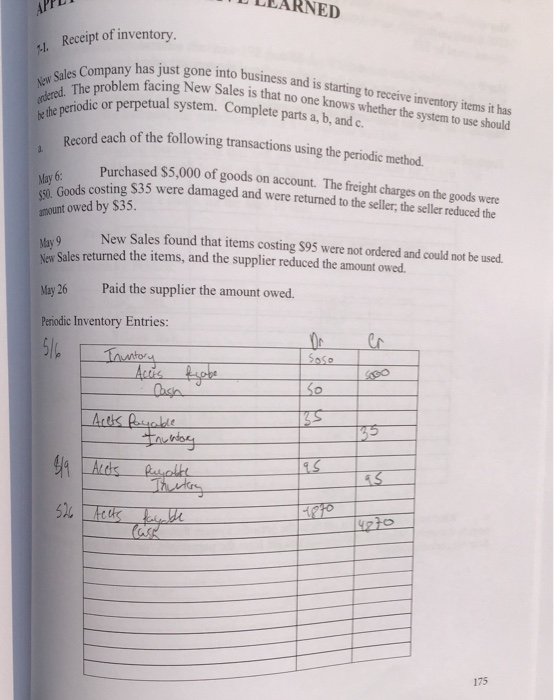 LEARNED
7-1. Receipt of inventory.
New Sales Company has just gone into business and is starting to receive inventory items it has
ordered. The problem facing New Sales is that no one knows whether the system to use should
be the periodic or perpetual system. Complete parts a, b, and c.
a. Record each of the following transactions using the periodic method.
May 6: Purchased $5,000 of goods on account. The freight charges on the goods were
$50. Goods costing $35 were damaged and were returned to the seller; the seller reduced the
amount owed by $35.
May 9 New Sales found that items costing $95 were not ordered and could not be used.
New Sales returned the items, and the supplier reduced the amount owed.
May 26 Paid the supplier the amount owed.
Periodic Inventory Entries:
Dr Cr
5/6 Inventory 5050
Accts
Cash 50
Accts Payable 35
35
Accts 95
95
526 Accts 4870
Cash 4870
175